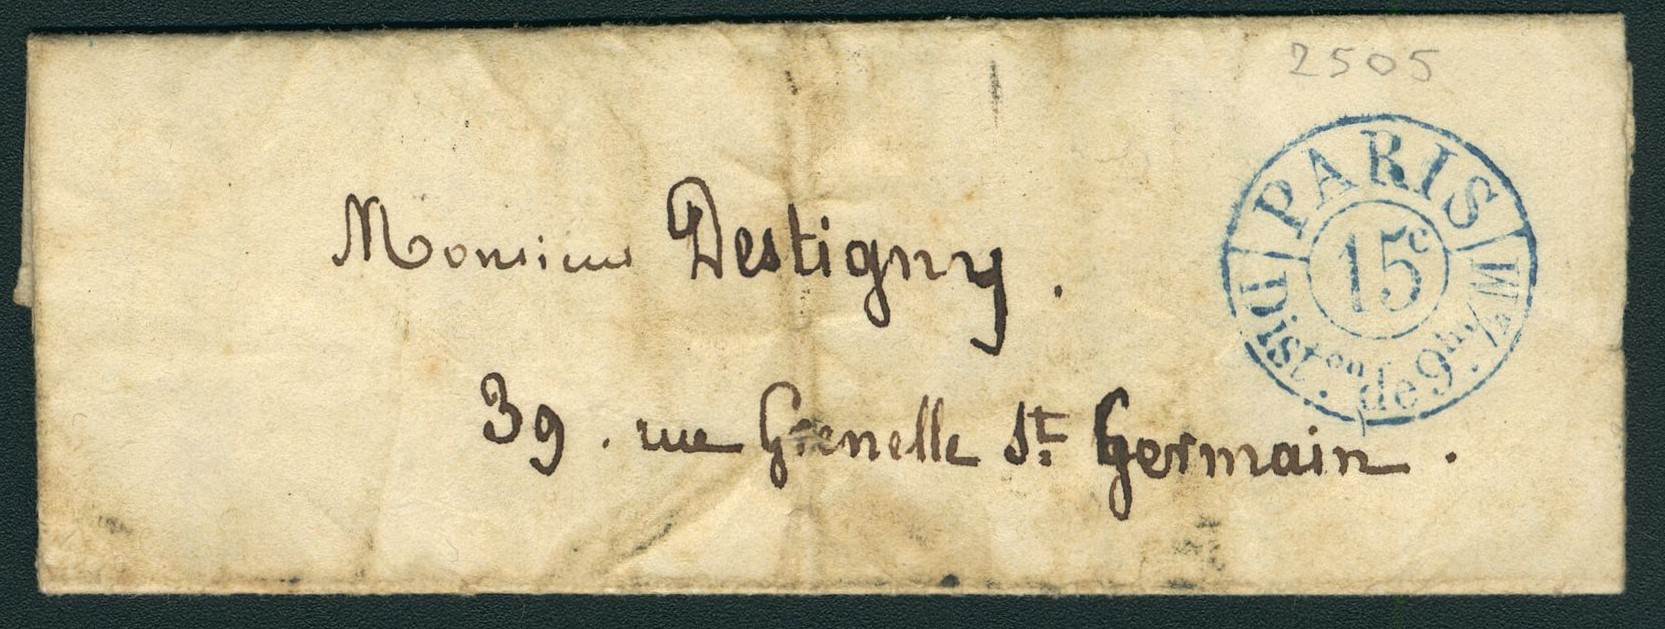 2505
PARIS
15c
Dist.on de 9h. M
Monsieur Destigny.
39. rue Grenelle St. Germain.